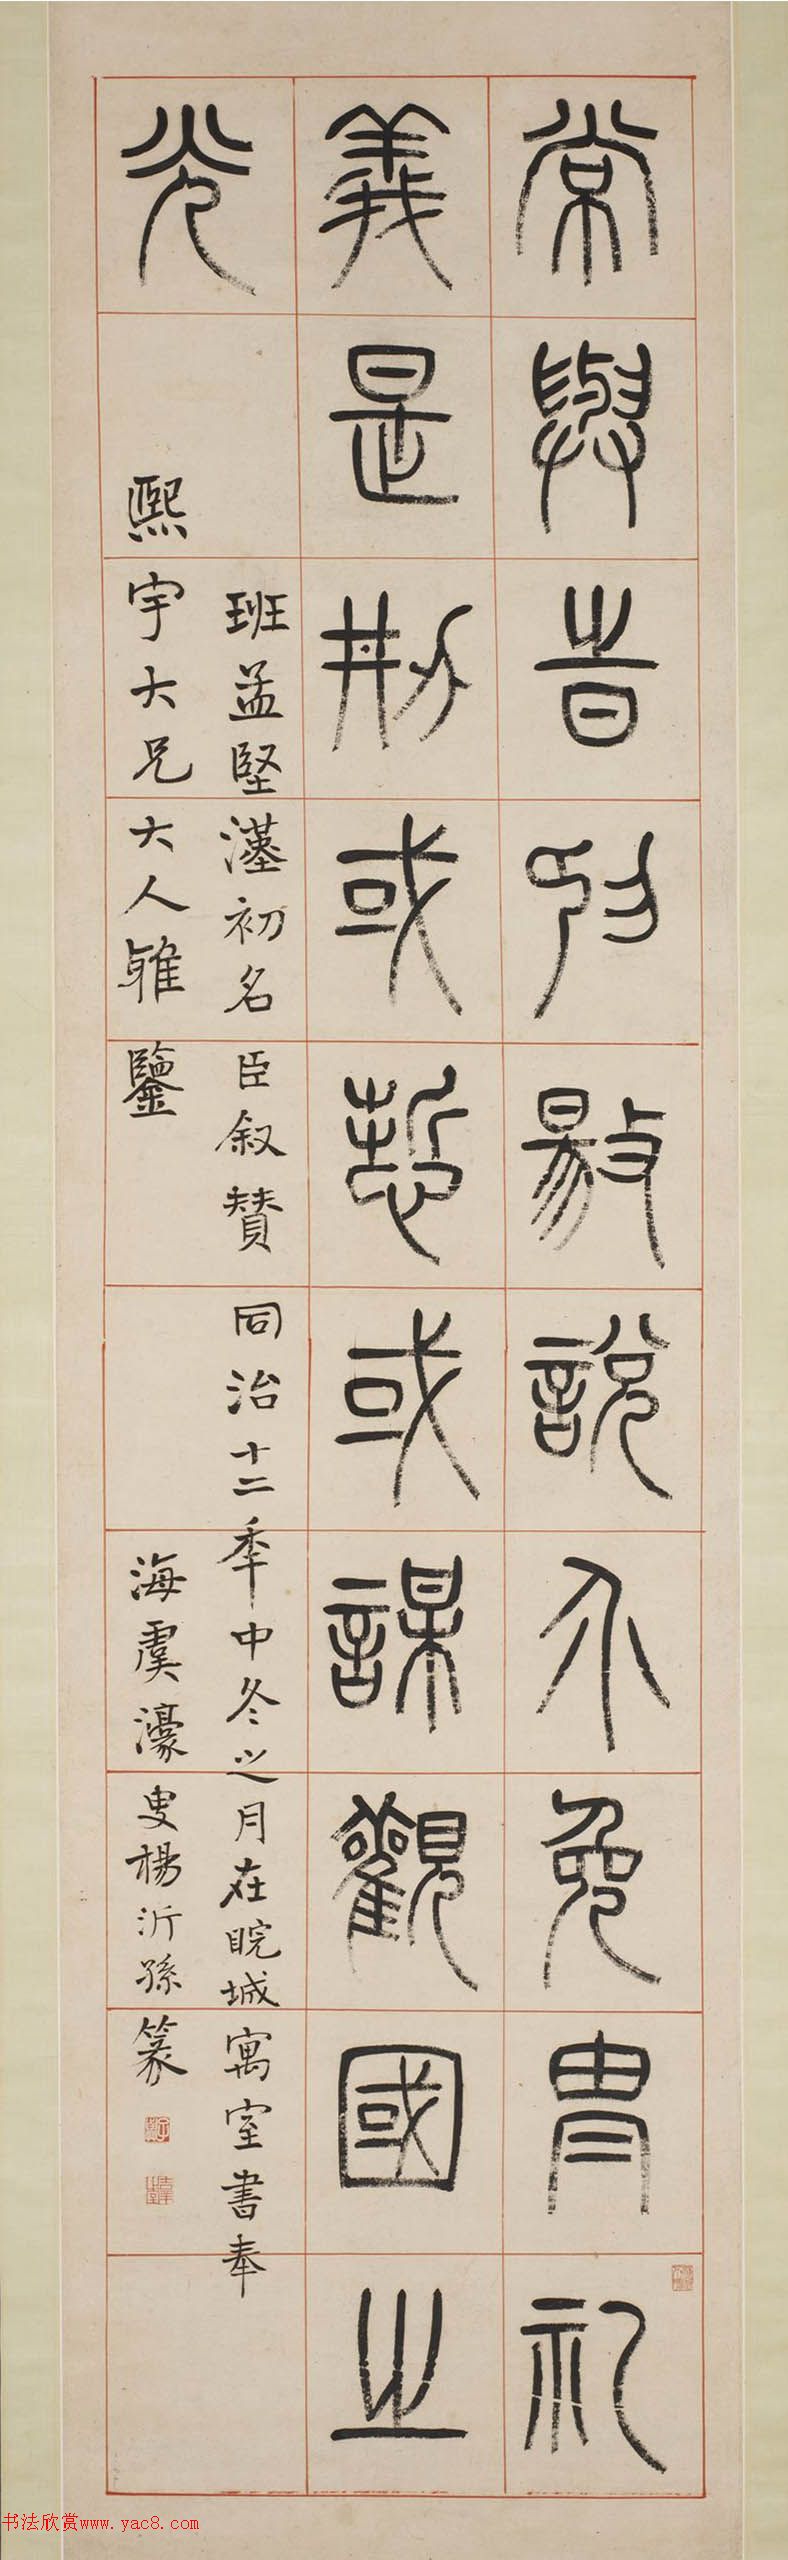 常與旹抑敭說介免冑礼
義是刱或悊或謀觀國之
光
班孟堅漢初名臣叙贊 同治十二季中冬之月在睆城寓室書奉
熙宇大兄大人雅鑒 海虞濠叟楊沂孫篆
书法欣赏www.yac8.com